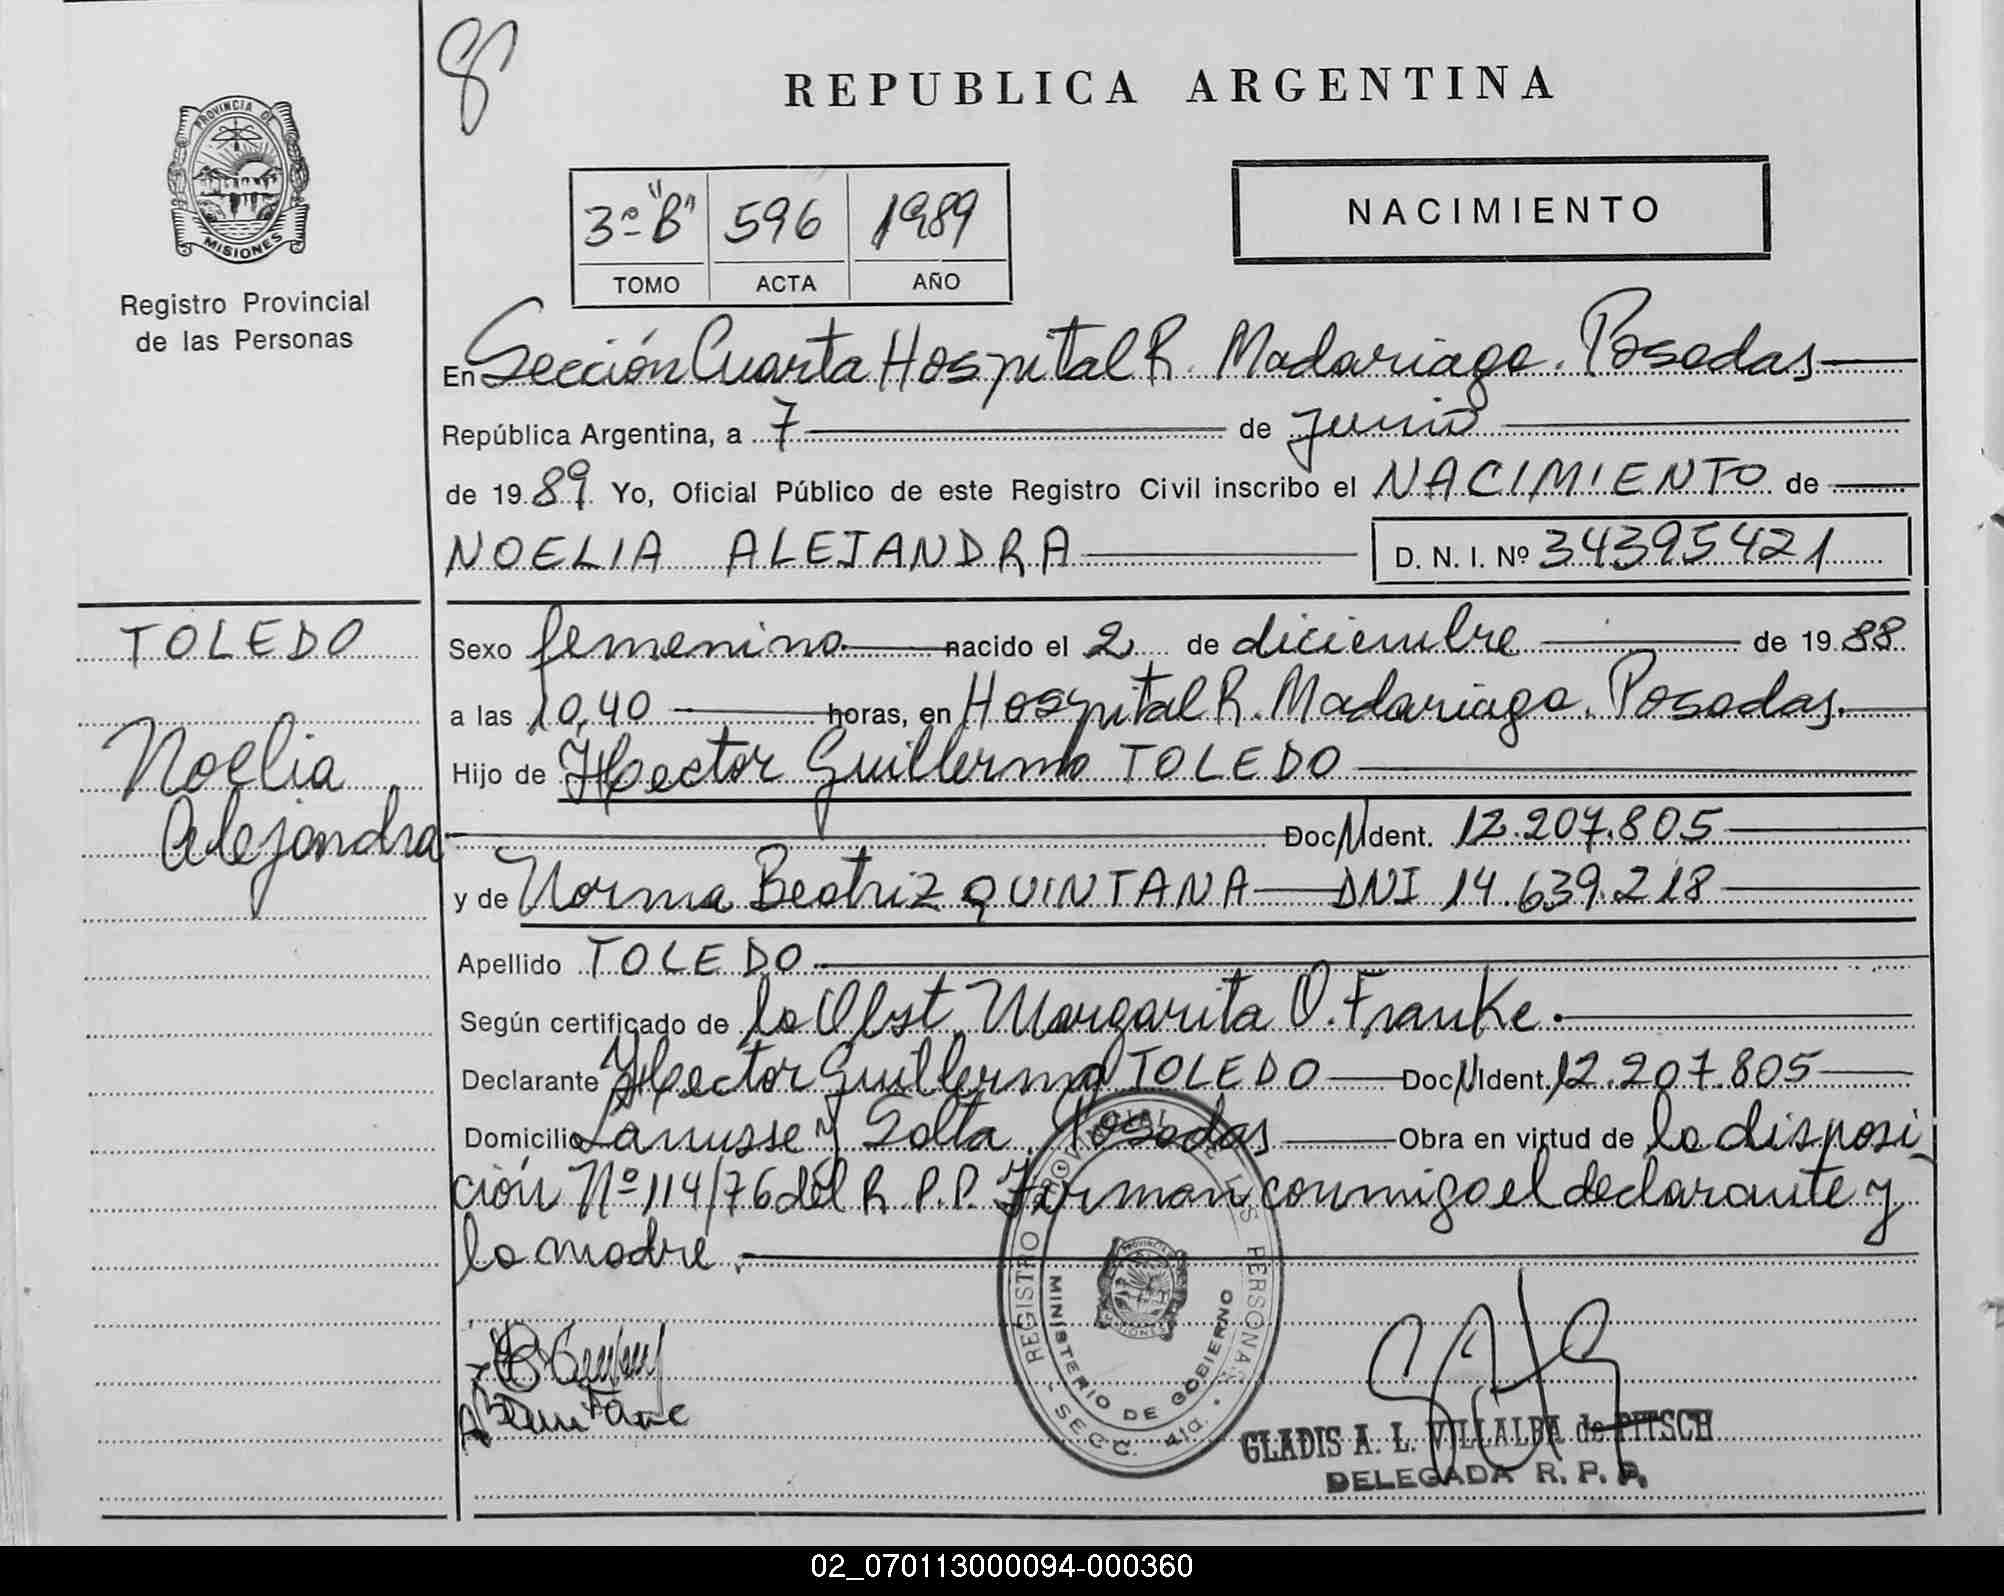 8
REPUBLICA ARGENTINA
PROVINCIA DE
MISIONES
Registro Provincial
de las Personas
3º "B" 596 1989
TOMO ACTA AÑO
NACIMIENTO
En Sección Cuarta Hospital R. Madariaga. Posadas
República Argentina, a 7 de Junio
de 1989 Yo, Oficial Público de este Registro Civil inscribo el NACIMIENTO de
NOELIA ALEJANDRA D. N. I. Nº 34395421
TOLEDO
Noelia
Alejandra
Sexo femenino nacido el 2 de diciembre de 1988
a las 10,40 horas, en Hospital R. Madariaga. Posadas.
Hijo de Hector Guillermo TOLEDO
Doc N Ident. 12.207.805
y de Norma Beatriz QUINTANA DNI 14.639.218
Apellido TOLEDO
Según certificado de la Obst. Margarita O. Franke.
Declarante Hector Guillermo TOLEDO Doc N Ident. 12.207.805
Domicilio Lanusse y Salta. Posadas Obra en virtud de la disposi-
ción Nº 114/76 del R.P.P. Firman conmigo el declarante y
la madre.
REGISTRO PROVINCIAL DE LAS PERSONAS
MINISTERIO DE GOBIERNO
- SECC. 4ta. -
PROVINCIA
MISIONES
GLADIS A. L. VILLALBA de PITSCH
DELEGADA R. P. P.
02_070113000094-000360